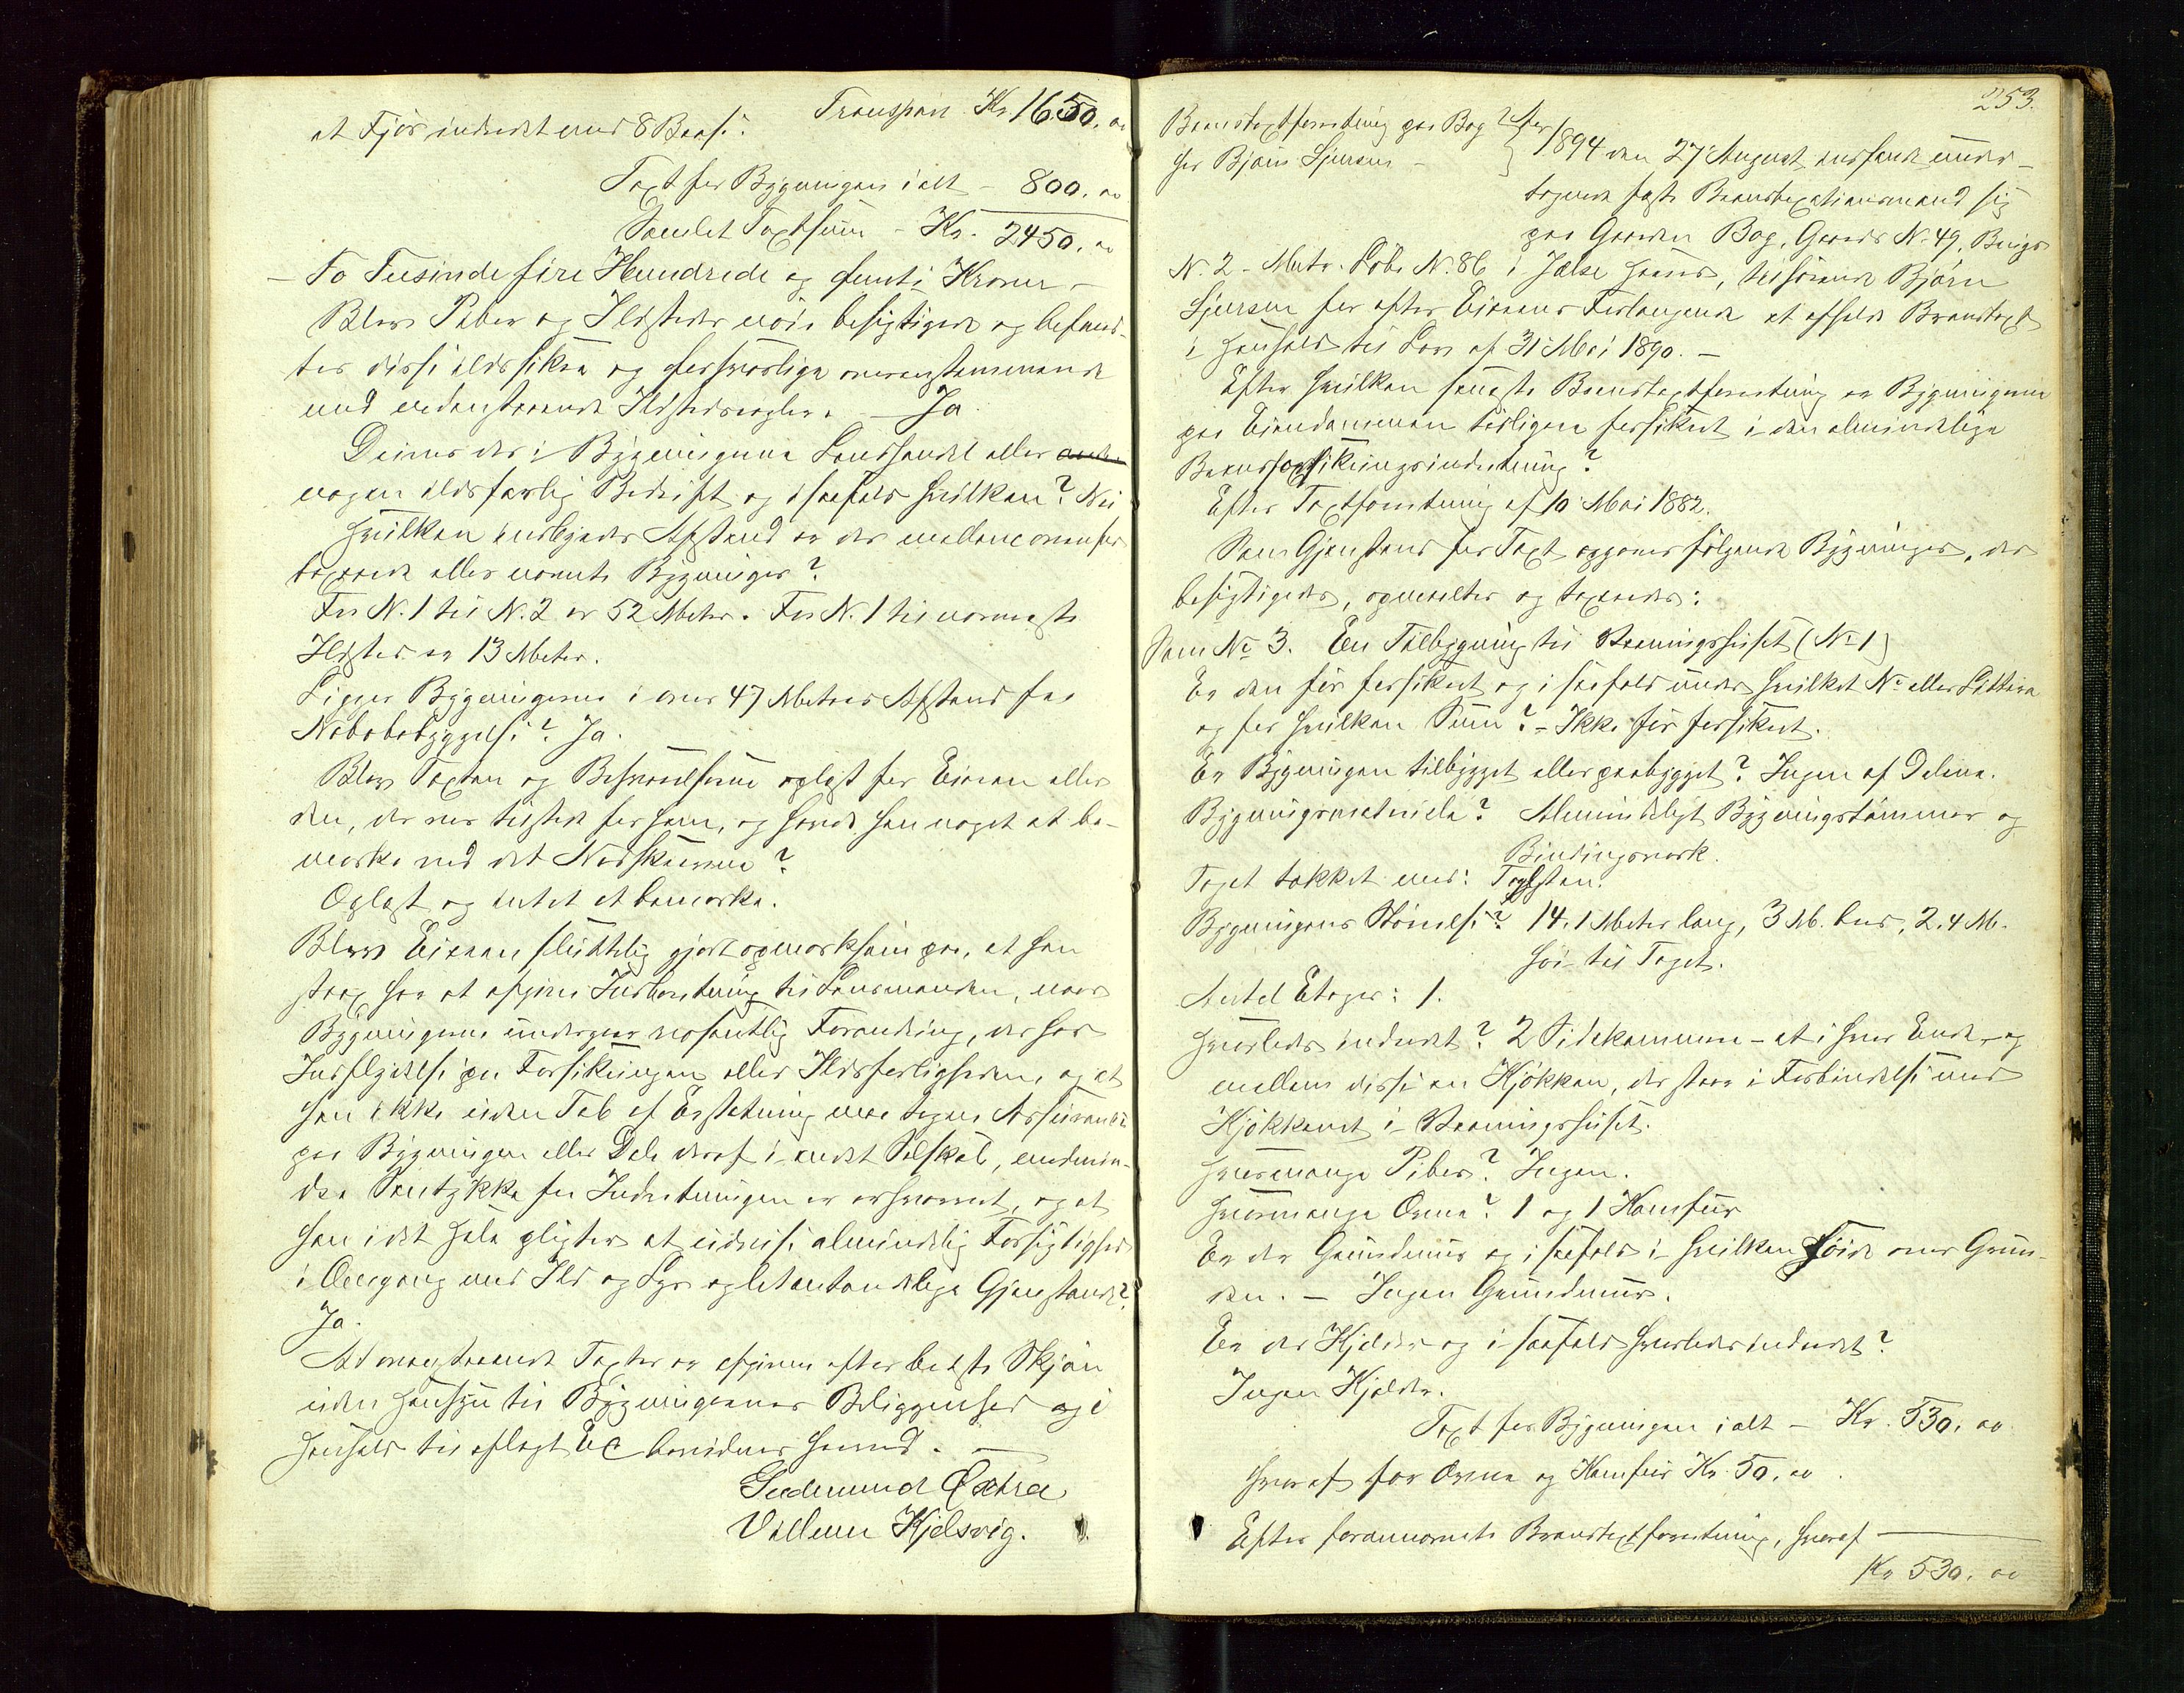 Transport Kr. 1650. 00
et Fjøs indredet med 8 Baase.
Taxt for Bygningen i alt - 800. 00
Samlet Taxtsum - Kr. 2450. 00
- To Tusinde fire Hundrede og femti Kroner -
Blev Piber og Ildsteder nøie besigtigede og befand-
tes disse ildssikre og forsvarlige overensstemmende
med nedenstaaende Ildstedsregler. - Ja.
Drives der i Bygningerne Landhandel eller
nogen ildsfarlig Bedrift og isaafald hvilken? Nei
Hvilken indbyrdes Afstand er der mellem ovenfor
taxerede eller nævnte Bygninger?
Fra N. 1 til N. 2 er 52 Meter. Fra N. 1 til nærmeste
Ildsted er 13 Meter.
Ligger Bygningerne i over 47 Meters Afstand fra
Nabobebyggelse? Ja.
Blev Taxten og Besvarelserne oplæst for Eieren eller
den, der var tilstede for ham, og havde han noget at be-
mærke ved det Nedskrevne?
Oplæst og intet at bemærke.
Blev Eieren sluttelig gjort opmærksom paa, at han
strax har at afgive Indberetning til Lensmanden, naar
Bygningerne undergaar væsentlig Forandring, der har
Indflydelse paa Forsikringen eller Ildsfarligheden, og at
han ikke uden Tab af Erstatning maa tegne Assurance
paa Bygningen eller Dele deraf i andet Selskab, medmin-
dre Samtykke fra Indretningen er erhvervet, og at
han i det Hele pligter at udvise almindelig Forsigtighed
i Omgang med Ild og Lys og letantændelige Gjenstande?
Ja.
At ovenstaaende Taxter er afgivne efter bedste Skjøn
uden Hensyn til Bygningernes Beliggenhed og i
Henhold til aflagt Ed bevidnes herved. -
Gudmund Østraa
Villum Hjelsvig.
253.
Brandtaxtforretning paa Bog
for Bjørn Sjursen -
1894 den 27 August indfandt under-
tegnede faste Brandtaxationsmænd sig
paa Gaarden Bog, Gaards N. 49, Brugs
N. 2 - Matr. Løbe N. 86 i Jelse Herred, tilhørende Bjørn
Sjursen for efter Eierens Forlangende at afholde Brandtaxt
i Henhold til Lov af 31 Mai 1890. -
Efter hvilken seneste Brandtaxtforretning er Bygningerne
paa Eiendommen tidligere forsikret i den almindelige
Brandforsikringsindretning?
Efter Taxtforretning af 10 Mai 1882.
Som Gjenstand for Taxt opgaves følgende Bygninger, der
besigtigedes, opmaaltes og taxeredes:
Som No 3. En Tilbygning til Vaaningshuset (No 1)
Er den før forsikret og i saafald under hvilket No eller Littera
og for hvilken Sum? - Ikke før forsikret.
Er Bygningen tilbygget eller paabygget? Ingen af Delene.
Bygningsmateriale? Almindeligt Bygningstømmer og
Bindingsværk.
Taget tækket med: Taglsten.
Bygningens Størrelse? 14.1 Meter lang, 3 M. bred, 2.4 M.
høi til Taget.
Antal Etager: 1.
Hvorledes indredet? 2 Sidekammere - et i hver Ende, og
mellem disse en Kjøkken, der staar i Forbindelse med
Kjøkkenet i Vaaningshuset.
Hvormange Piber? Ingen.
Hvormange Ovne? 1 og 1 Komfur
Er der Grundmur og i saafald i hvilken Høide over Grun-
den. - Ingen Grundmur.
Er der Kjelder og i saafald hvorledes indredet?
Ingen Kjelder.
Taxt for Bygningen i alt - Kr. 530. 00
Hvoraf for Ovne og Komfur Kr. 50. 00.
Efter forannævnte Brandtaxtforretning, hvoraf
Kr 530. 00